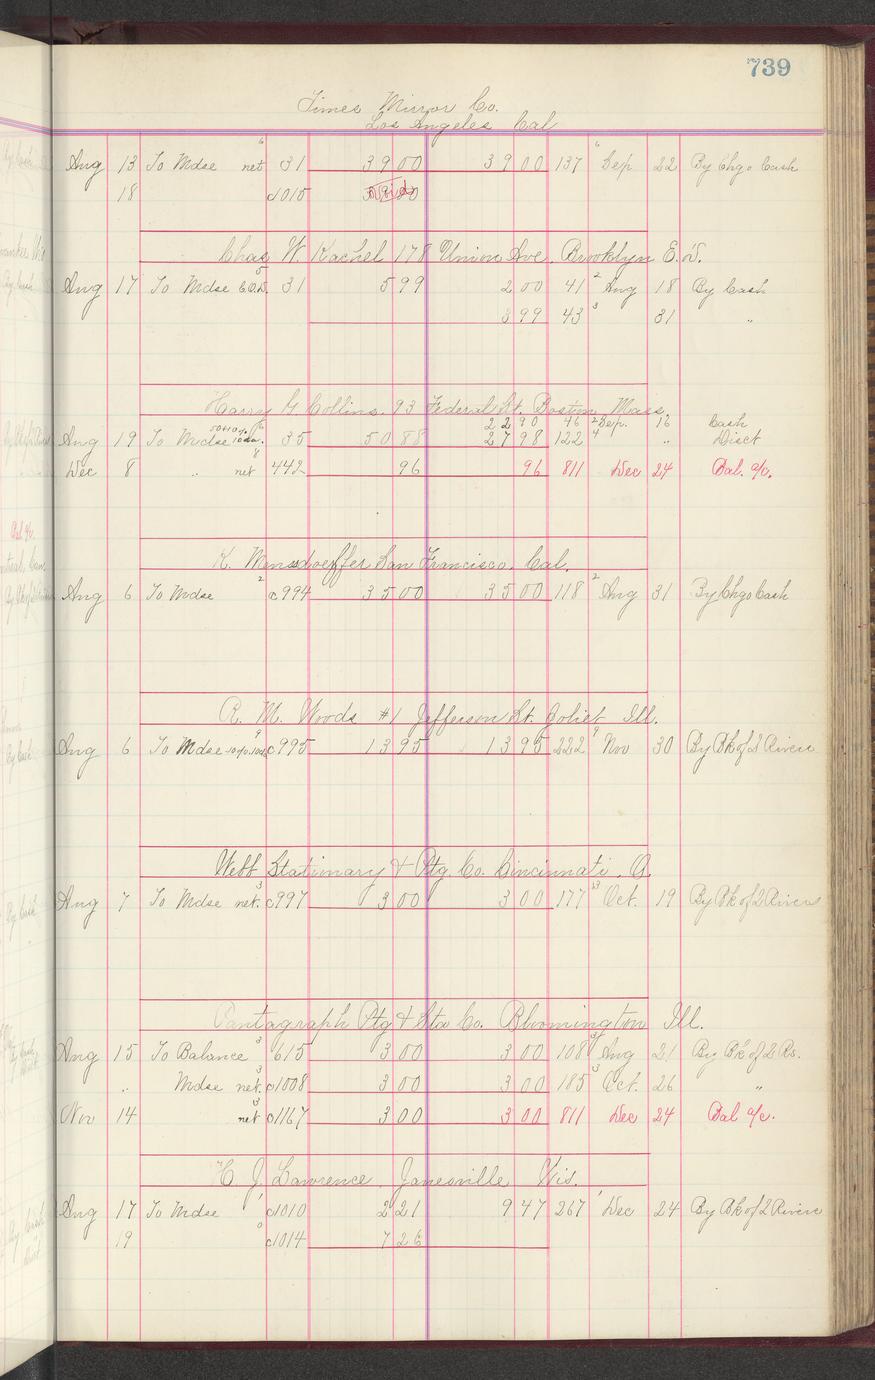 739
Times Mirror Co.
Los Angeles Cal
Aug 13 To Mdse net 6 31 39 00 39 00 137 6 Sep 22 By Chgo Cash
18 c1015 Void
Chas W. Kachel 178 Union Ave. Brooklyn E. D.
Aug 17 To Mdse C.O.D. 5 31 5 99 2 00 41 2 Aug 18 By Cash
3 99 43 3 31 "
Harry G Collins. 93 Federal St. Boston Mass.
22 90 46 2 Sep. 16 Cash
Aug 19 To Mdse 50+10% 10 day. 6 35 50 88 27 98 122 4 " Disct
Dec 8 " net 8 442 96 96 811 Dec 24 Bal. a/c.
K. Mensdoeffer San Francisco, Cal.
Aug 6 To Mdse 2 c994 35 00 35 00 118 2 Aug 31 By Chgo Cash
R. M. Woods #1 Jefferson St. Joliet Ill.
Aug 6 To Mdse 9 c995 13 95 13 95 222 9 Nov 30 By Bk of 2 Rivers
Webb Stationary & Ptg Co. Cincinnati, O.
Aug 7 To Mdse net. 3 c997 3 00 3 00 177 13 Oct. 19 By Bk of 2 Rivers
Pantagraph Ptg & Sta Co. Bloomington Ill.
Aug 15 To Balance 3 615 3 00 3 00 108 3 Aug 21 By Bk of 2 Rs.
" Mdse net. 3 c1008 3 00 3 00 185 3 Oct. 26 "
Nov 14 net 3 c1167 3 00 3 00 811 Dec 24 Bal a/c.
H J Lawrence, Janesville Wis.
Aug 17 To Mdse 1 c1010 2 21 9 47 267 1 Dec 24 By Bk of 2 Rivers
19 c1014 7 26